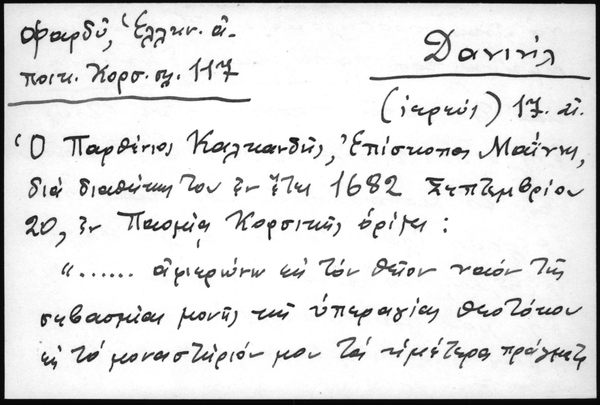 Φαρδύ, Ἑλλην. ἀ-
ποικ. Κορσ. σλ. 117
Δανιήλ
(ἱερεύς) 17. αἰ.
Ὁ Παρθένιος Καλκανδῆς, Ἐπίσκοπος Μαΐνης,
διά διαθήκης του ἐν ἔτει 1682 Σεπτεμβρίου
20, ἐν Παομίᾳ Κορσικῆς ὁρίζει :
“...... ἀφιερώνω εἰς τόν θεῖον ναόν τῆς
σεβασμίας μονῆς τῆς ὑπεραγίας Θεοτόκου
εἰς τό μοναστήριόν μου τά ἡμέτερα πράγματα